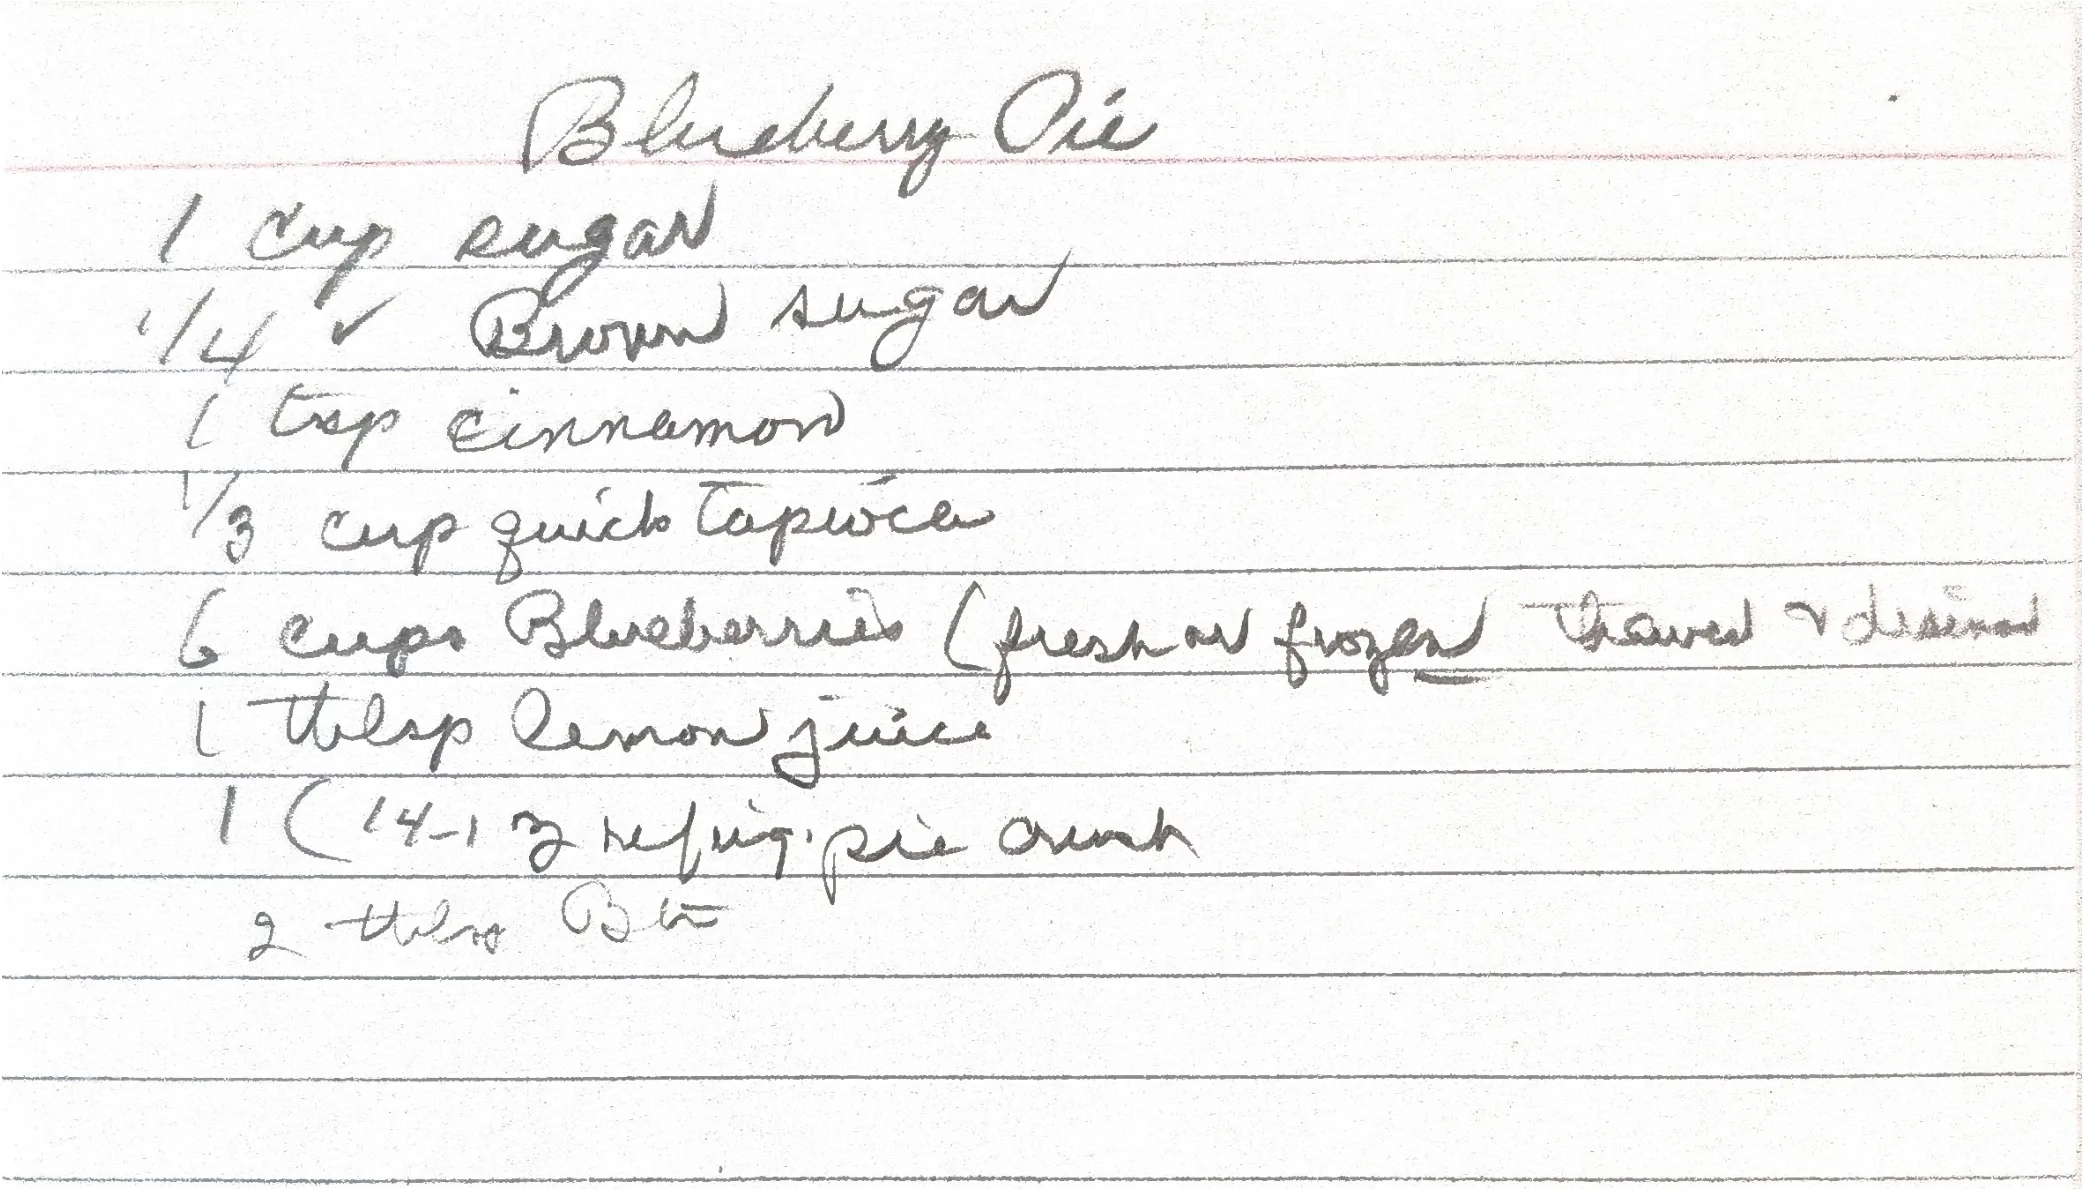 Blueberry Pie
1 cup sugar
1/4 " Brown sugar
1 tsp cinnamon
1/3 cup quick Tapioca
6 cups Blueberries (fresh or frozen thawed & drained
1 tblsp lemon juice
1 (14-1 oz refrig. pie crust
2 tblsp